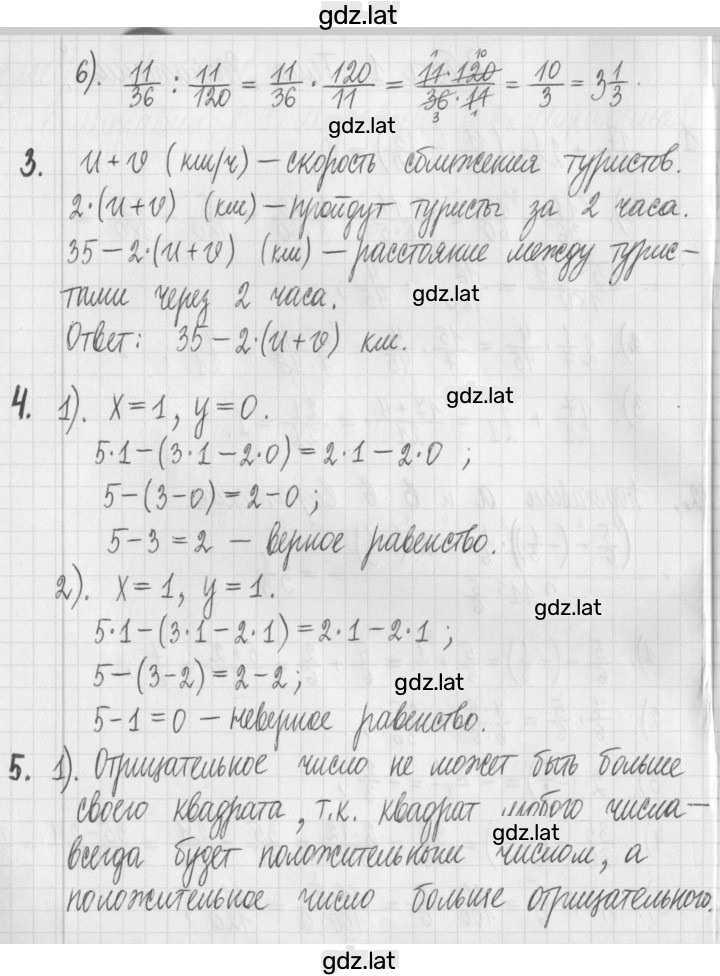 gdz.lat
6). 11/36 : 11/120 = 11/36 · 120/11 = 11·120/36·11 = 10/3 = 3 1/3.
gdz.lat
3. u+v (км/ч) – скорость сближения туристов.
2·(u+v) (км) – пройдут туристы за 2 часа.
35–2·(u+v) (км) – расстояние между турис–
тами через 2 часа.
gdz.lat
Ответ: 35–2·(u+v) км.
gdz.lat
4. 1). x=1, y=0.
5·1–(3·1–2·0)=2·1–2·0 ;
5–(3–0)=2–0 ;
5–3=2 – верное равенство.
2). x=1, y=1.
gdz.lat
5·1–(3·1–2·1)=2·1–2·1 ;
5–(3–2)=2–2 ;
gdz.lat
5–1=0 – неверное равенство.
5. 1). Отрицательное число не может быть больше
своего квадрата, т.к. квадрат любого числа –
gdz.lat
всегда будет положительным числом, а
положительное число больше отрицательного.
gdz.lat